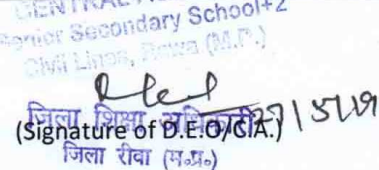 CENTRAL
Senior Secondary School+2
Civil Lines, Rewa (M.P.)
27/5/19
जिला शिक्षा अधिकारी
(Signature of D.E.O/CIA.)
जिला रीवा (म.प्र.)